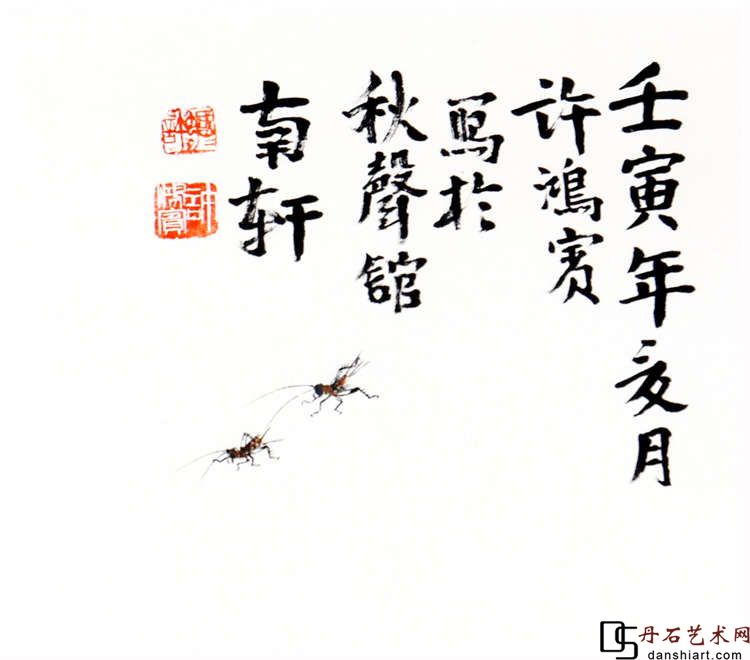 壬寅年亥月
许鴻宾
写於
秋聲館
南轩
丹石艺术网
danshiart.com